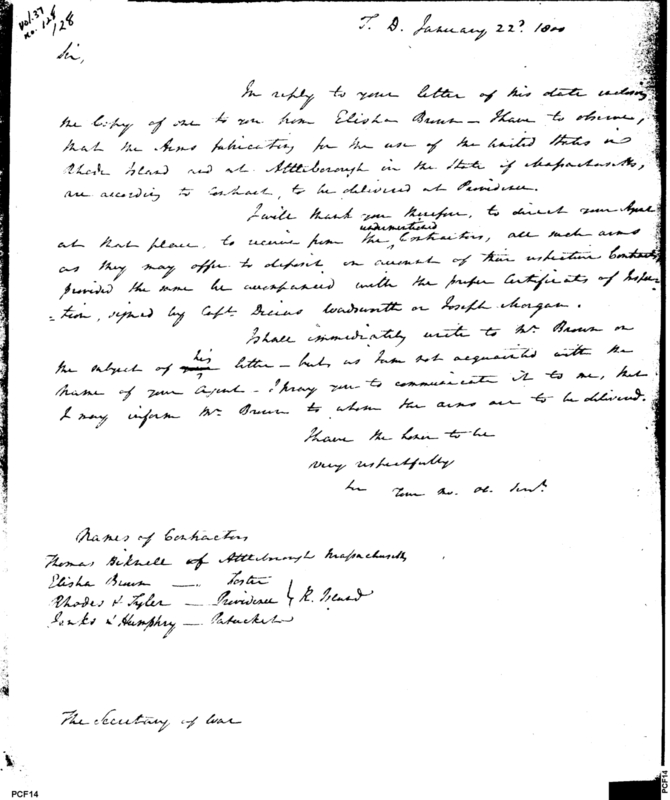 Vol. 37
no. 128
128
T. D. January 22d. 1800
Sir,
In reply to your letter of this date inclosing
the Copy of one to you from Elisha Brown — I have to observe,
that the Arms fabricating for the use of the United States in
Rhode Island and at Attleborough in the State of Massachusetts,
are according to Contract, to be delivered at Providence.
I will thank you therefore, to direct your Agent
at that place, to receive from the undermentioned Contractors, all such arms
as they may offer to deposit on account of their respective Contracts
provided the same be accompanied with the proper Certificates of Inspec-
-tion, signed by Capt. Decius Wadsworth or Joseph Morgan.
I shall immediately write to Mr. Brown on
the subject of his letter — but as I am not acquainted with the
Name of your Agent — I pray you to communicate it to me, that
I may inform Mr. Brown to whom the arms are to be delivered.
I have the honor to be
very respectfully
Sir Your mo. ob. Servt.
Names of Contractors
Thomas Bicknell of Attleborough Massachusetts
Elisha Brown — Foster
Rhodes & Tyler — Providence } R. Island
Jenks & Humphry — Patucket
The Secretary of War
PCF14
PCF14